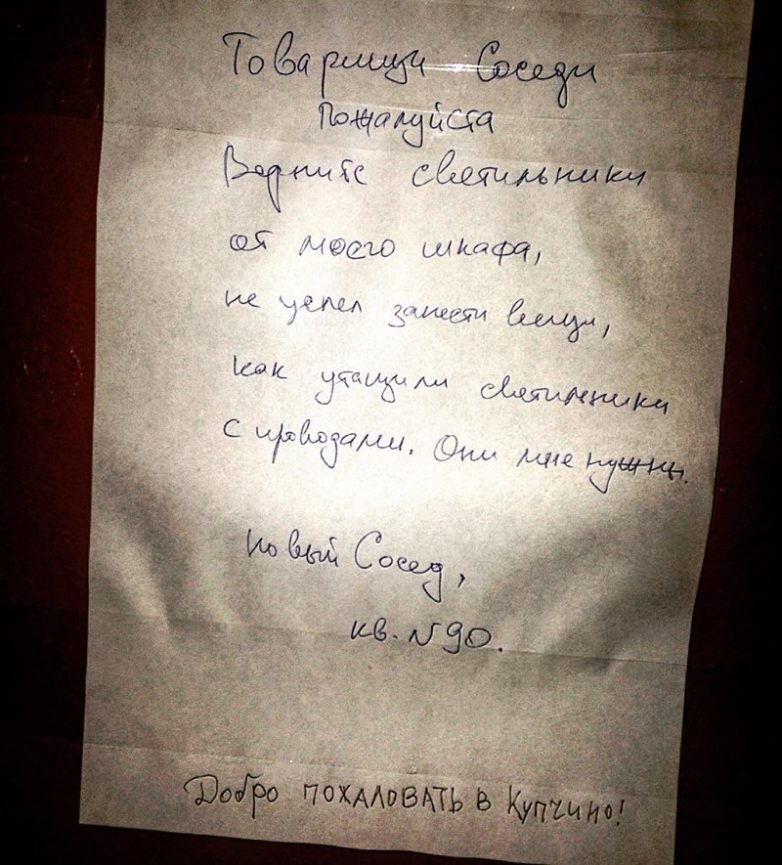 Товарищи Соседи
Пожалуйста
Верните светильники
от моего шкафа,
не успел занести вещи,
как утащили светильники
с проводами. Они мне нужны.
Новый Сосед,
кв. N 90.
Добро пожаловать в Купчино!